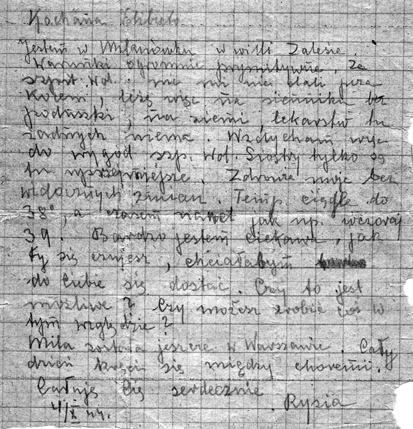 Kochana Elżbieto.
Jestem w Milanówku w willi Zalesie.
Warunki ogromnie prymitywne. Ze
szpit. Wol. nic mi nie dali prócz
kocem, leżę więc na sienniku bez
poduszki, na ziemi lekarstw tu
żadnych niema. Wzdycham więc
do wygód szp. Wol. Siostry tylko są
tu uprzejmiejsze. Zdrowie moje bez
widocznych zmian. Temp. ciągle do
38°, a czasem nawet jak np. wczoraj
39. Bardzo jestem ciekawa, jak
Ty się czujesz, chciałabym
do Ciebie się dostać. Czy to jest
możliwe? Czy możesz zrobić coś w
tym względzie?
Mila została jeszcze w Warszawie. Cały
dzień kręci się między choremi.
Całuję Cię serdecznie
Rysia
4/X 44.